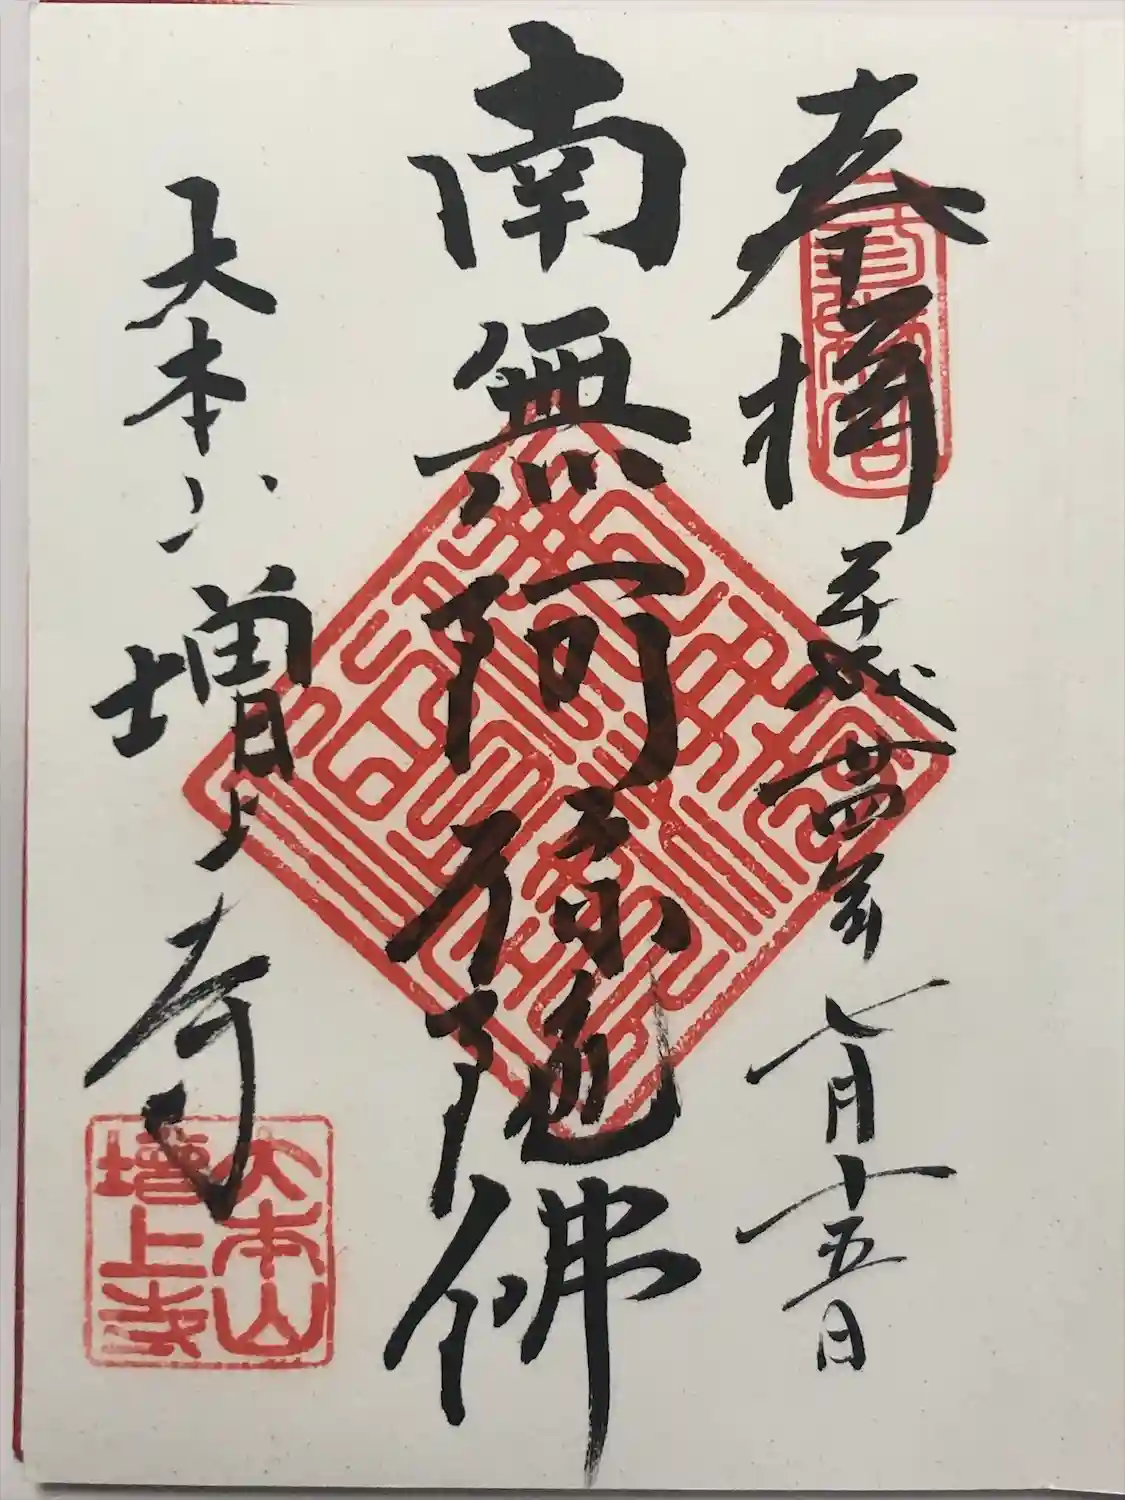 奉拝
平成廿四年七月十五日
南無阿弥陀佛
大本山増上寺
大本山
增上寺